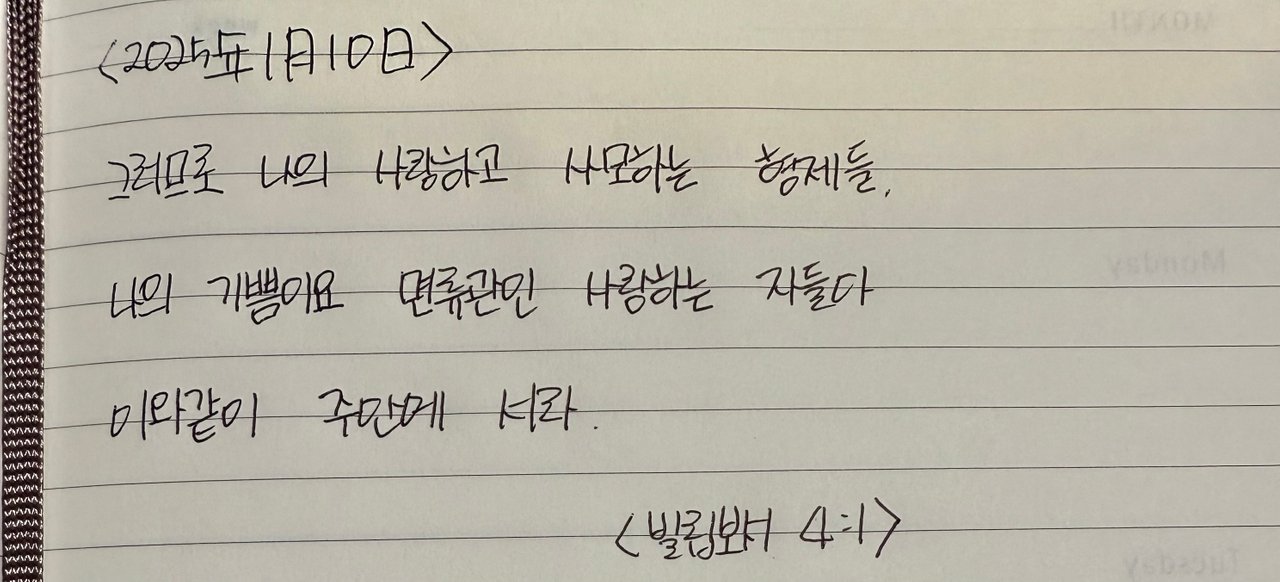 <2025年1月10日>
그러므로 나의 사랑하고 사모하는 형제들,
나의 기쁨이요 면류관인 사랑하는 자들아
이와같이 주안에 서라.
<빌립보서 4:1>
MONTH
Monday
Tuesday